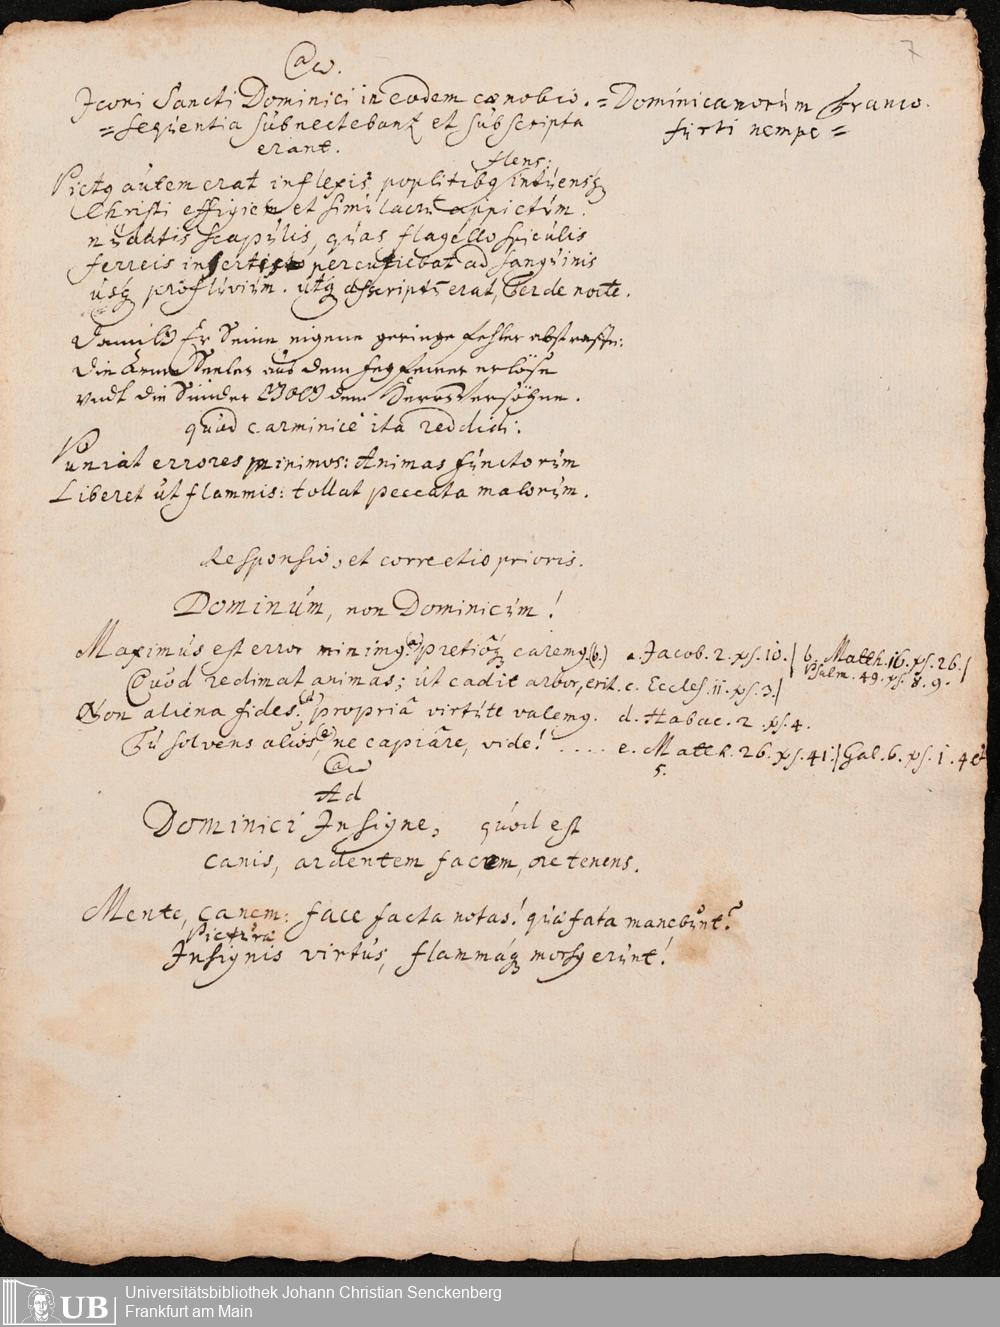 7
Iconi Sancti Dominici in eodem cœnobio. = Dominicanorum Franco-
= sequentia subnectebant et subscripta furti nempe =
erant.
flens:
Pictq autem erat inflexis poplitibq intuensq
Christi effigiem et simulacrū appictum.
nudatis scapulis, quas flagello spiculis
ferreis percutiebat ad sanguinis
usq profluvium. utq erat, Ter de nocte.
Damitt Er Seine eigene geringe fehler abstraffe:
die Arme Seelen aus dem fegfewer erlöse
vndt die Sünder Mitt dem Herrn Versöhne.
quod carminice ita reddidi:
Puniat errores minimos: Animas functorum
Liberet ut flammis: tollat peccata malorum.
Responsio, et correctio prioris.
Dominum, non Dominicum!
Maximus est error minimq (a) pretioq caremq. (b.) a. Jacob. 2. vs. 10. / b. Matth. 16. vs. 26. /
Psalm. 49. vs. 8. 9.
Quod redimat animas; ut cadit arbor, erit. c. Eccles. 11. vs. 3. /
Non aliena fides, (d) propriâ virtute valemq. d. Habac. 2. vs. 4.
Tu solvens alios, (e) ne capiare, vide! .... e. Matth. 26. vs. 41. / Gal. 6. vs. 1. 4 et
5.
Ad
Dominici Insigne, quod est
canis, ardentem facem, ore tenens.
Mente, canem: face facta notas! quâ fata manebunt?
Pictura
Insignis virtus, flammáq morsq erunt!
Universitätsbibliothek Johann Christian Senckenberg
Frankfurt am Main
UB